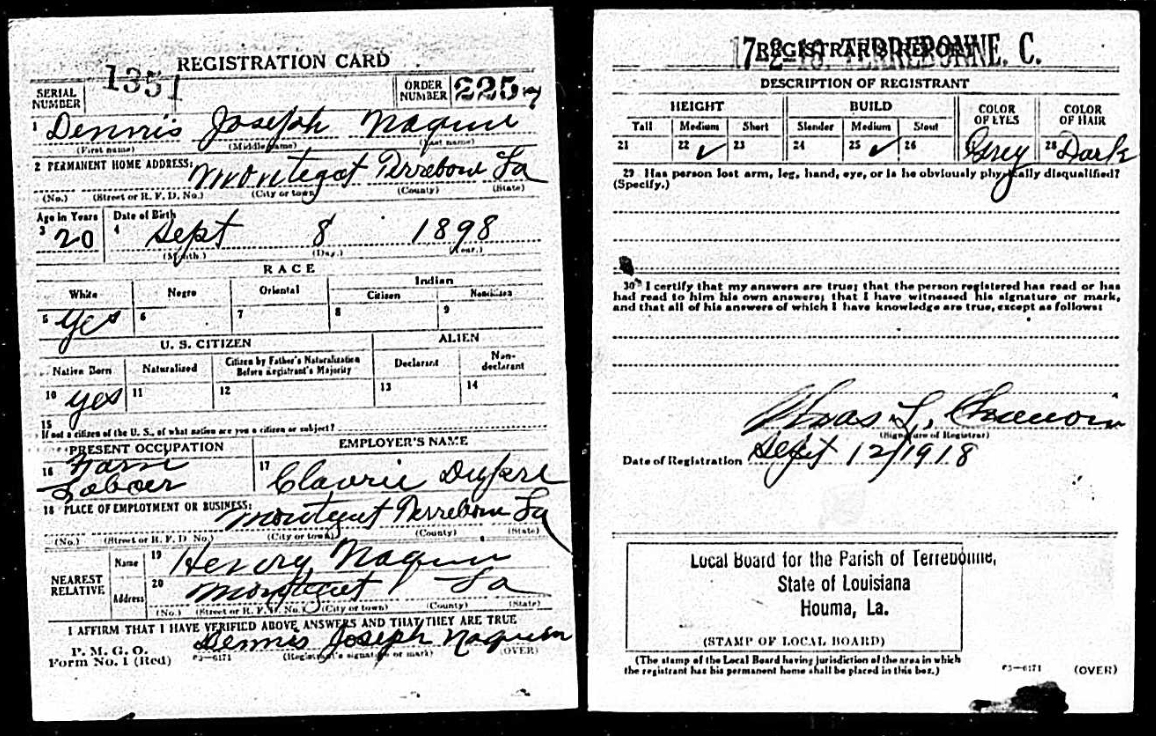 REGISTRATION CARD
SERIAL NUMBER 1351 ORDER NUMBER 225
1 Dennis Joseph Naquin
(First name) (Middle name) (Last name)
2 PERMANENT HOME ADDRESS: Montegut Terrebone La
(No.) (Street or R. F. D. No.) (City or town) (County) (State)
Age in Years Date of Birth
3 20 4 Sept 8 1898
(Month.) (Day.) (Year.)
RACE
White Negro Oriental Indian
Citizen Noncitizen
5 yes 6 7 8 9
U. S. CITIZEN ALIEN
Native Born Naturalized Citizen by Father's Naturalization Before Registrant's Majority Declarant Non-declarant
10 yes 11 12 13 14
15
If not a citizen of the U. S., of what nation are you a citizen or subject?
PRESENT OCCUPATION EMPLOYER'S NAME
16 Farm Laborer 17
18 PLACE OF EMPLOYMENT OR BUSINESS: Montegut Terrebone La
(No.) (Street or R. F. D. No.) (City or town) (County) (State)
NEAREST RELATIVE Name 19 Henry Naquin
Address 20 Montegut La
(No.) (Street or R. F. D. No.) (City or town) (County) (State)
I AFFIRM THAT I HAVE VERIFIED ABOVE ANSWERS AND THAT THEY ARE TRUE
P. M. G. O.
Form No. 1 (Red) Dennis Joseph Naquin
03—6171 (Registrant's signature or mark) (OVER)
REGISTRAR'S REPORT
TERREBONNE. C.
DESCRIPTION OF REGISTRANT
HEIGHT BUILD COLOR OF EYES COLOR OF HAIR
Tall Medium Short Slender Medium Stout
21 22 ✓ 23 24 25 ✓ 26 Grey 28 Dark
29 Has person lost arm, leg, hand, eye, or is he obviously physically disqualified?
(Specify.)
30 I certify that my answers are true; that the person registered has read or has
had read to him his own answers; that I have witnessed his signature or mark,
and that all of his answers of which I have knowledge are true, except as follows:
(Signature of Registrar)
Date of Registration Sept 12/1918
Local Board for the Parish of Terrebonne,
State of Louisiana
Houma, La.
(STAMP OF LOCAL BOARD)
(The stamp of the Local Board having jurisdiction of the area in which
the registrant has his permanent home shall be placed in this box.)
03—6171 (OVER)